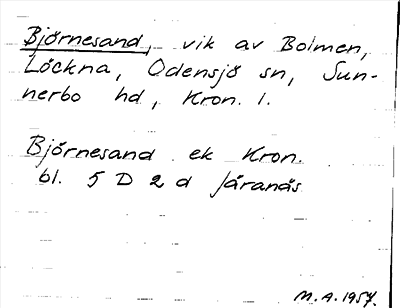 Björnesand, vik av Bolmen,
Löckna, Odensjö sn, Sun-
nerbo hd, Kron. l.
Björnesand ek Kron.
bl. 5 D 2 d Járanäs
M. A. 1957.